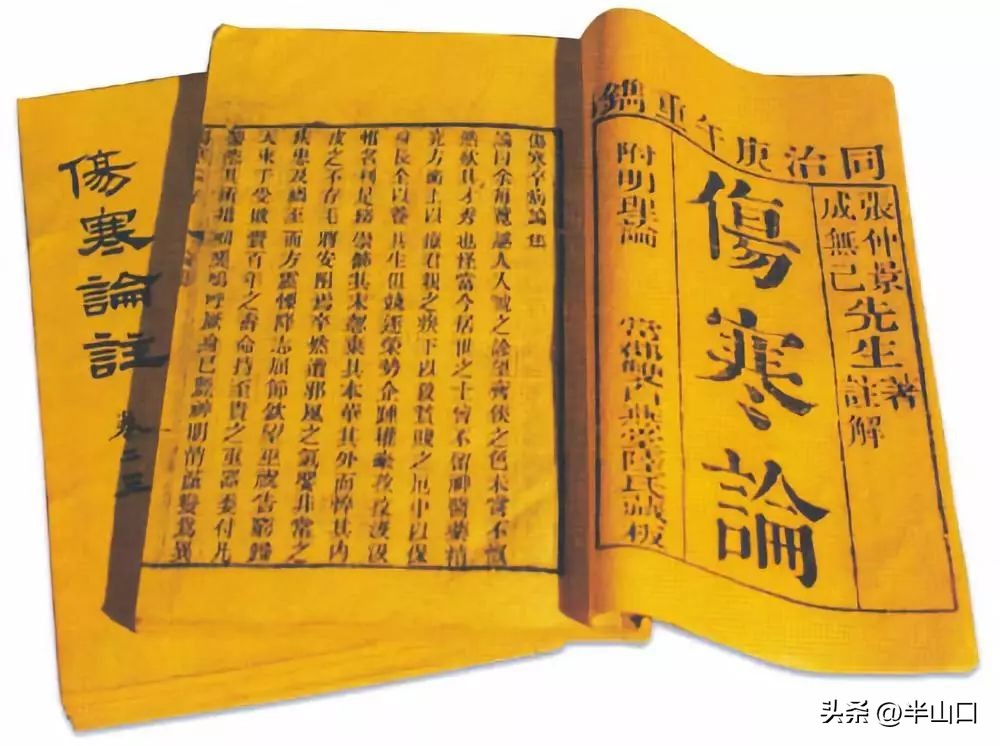 同治庚午重鐫
張仲景先生著
成無己註解
傷寒論
附明理論 常郡雙白燕堂陸氏藏板
傷寒卒病論集
論曰余每覽越人入虢之診望齊侯之色未嘗不慨
然歎其才秀也怪當今居世之士曾不留神醫藥精
究方術上以療君親之疾下以救貧賤之厄中以保
身長全以養其生但競逐榮勢企踵權豪孜孜汲汲
惟名利是務崇飾其末忽棄其本華其外而悴其內
皮之不存毛將安附焉卒然遭邪風之氣嬰非常之
疾患及禍至而方震慄降志屈節欽望巫祝告窮歸
天束手受敗賫百年之壽命持至貴之重器委付凡
醫恣其所措咄嗟嗚呼厥身已斃神明消滅變為異
傷寒論註
卷二三
头条 @半山口